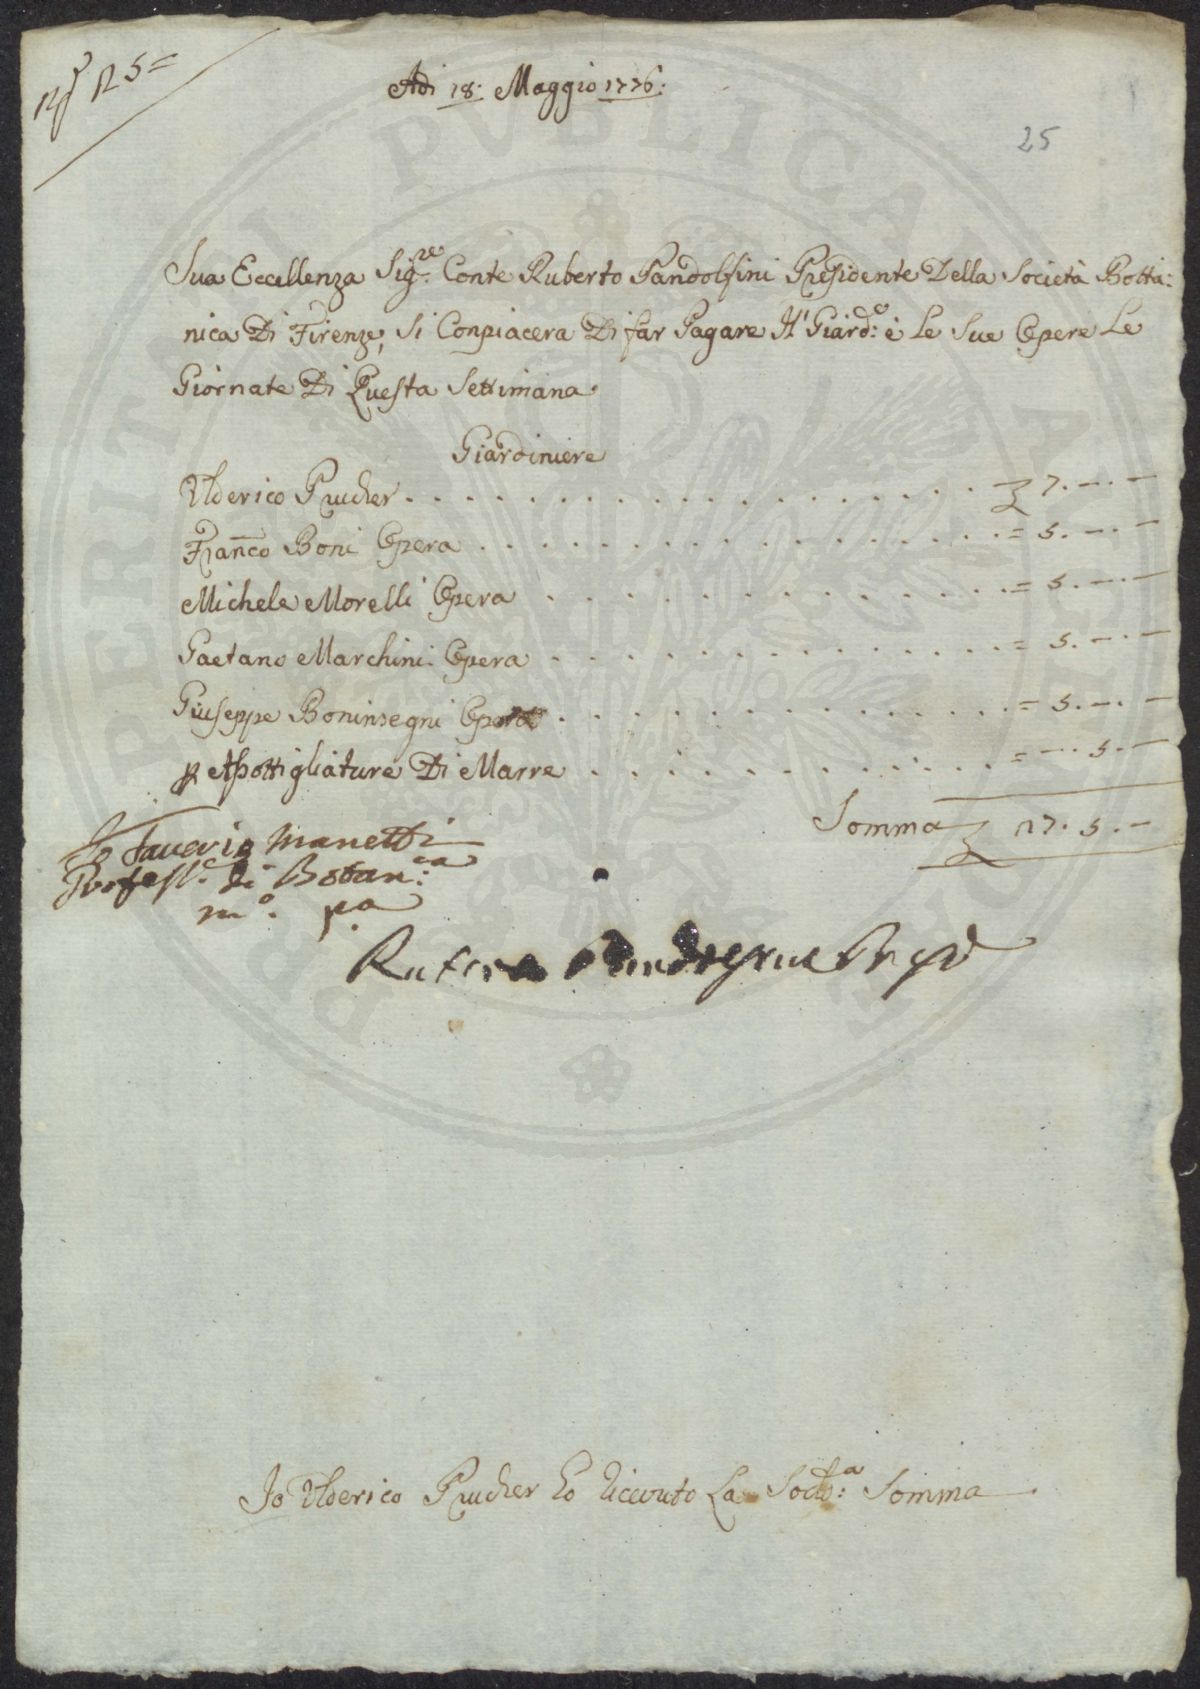 N.º 125=
Adi 18: Maggio 1776:
25
Sua Eccellenza Sig.re Conte Ruberto Pandolfini Presidente Della Società Botta:
nica Di Firenze, Si Conpiacera Di far Pagare Al Giard:o è le Sue Opere Le
Giornate Di Questa Settimana
Giardiniere
Ulderico Prucher . . . . . . . . . . . . . . . . . . £ 7. — . —
Franco Boni Opera . . . . . . . . . . . . . . . . = 5. — . —
Michele Morelli Opera . . . . . . . . . . . . . . = 5. — . —
Gaetano Marchini: Opera . . . . . . . . . . . . . = 5. — . —
Giuseppe Boninsegni Opera . . . . . . . . . . . . = 5. — . —
p Assottigliature Di Marre . . . . . . . . . . . = — . 5. —
Somma £ 27. 5. —
Io Saverio Manetti
Profess.e di Botan:ca
m.o p.a
Ruberto Pandolfini Presid
Io Ulderico Prucher ho ricevuto La Sodd:a Somma
PERITATI PVBLICAE